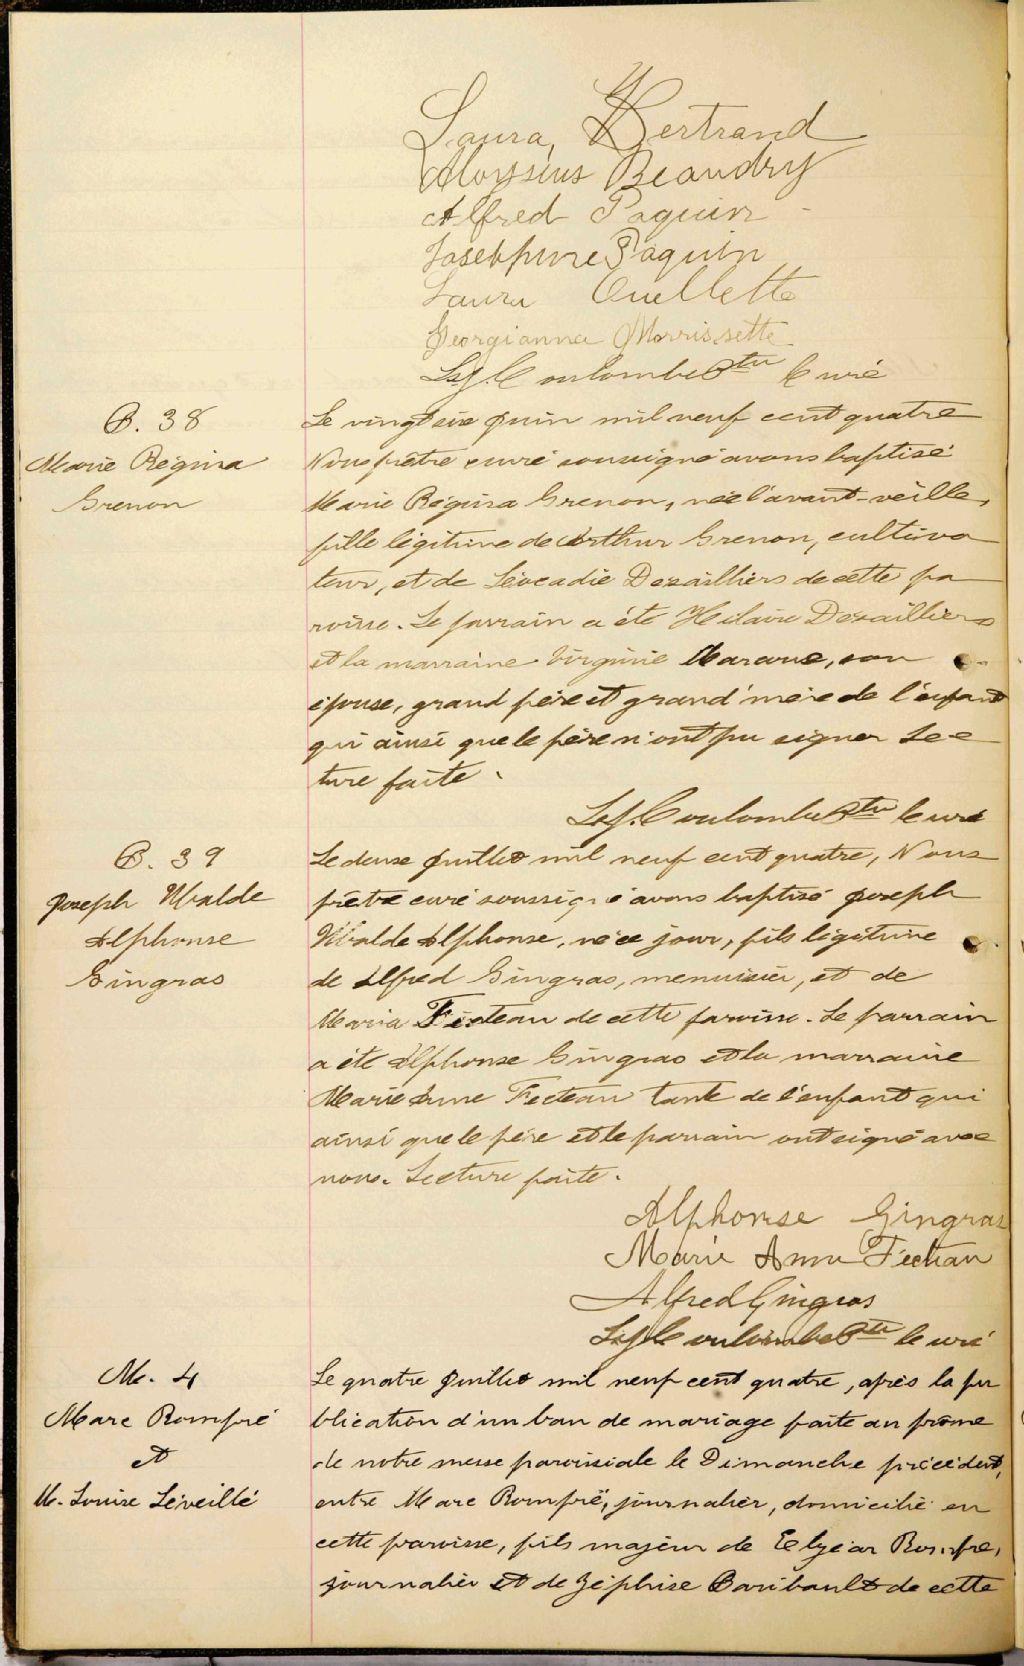 Laura Bertrand
Aloysius Beaudry
Alfred Paquin
Josephine Paquin
Laura Ouellette
Georgianna Morrissette
Coulombe Ptre Curé
B. 38
Marie Régina
Grenon
Le vingt six Juin mil neuf cent quatre
Nous prêtre curé soussigné avons baptisé
Marie Régina Grenon, née l'avant-veille,
fille légitime de Arthur Grenon, cultiva
teur, et de Léocadie Desailliers de cette pa
roisse. Le parrain a été Hilaire Desailliers
et la marraine Virginie son
épouse, grand père et grand'mère de l'enfant
qui ainsi que le père n'ont pu signer Lec
ture faite.
Coulombe Ptre Curé
B. 39
Joseph Ubalde
Alphonse
Gingras
Le deuse Juillet mil neuf cent quatre, Nous
prêtre curé soussigné avons baptisé Joseph
Ubalde Alphonse, né ce jour, fils légitime
de Alfred Gingras, menuisier, et de
Maria Fecteau de cette paroisse. Le parrain
a été Alphonse Gingras et la marraine
Marie Anne Fecteau tante de l'enfant qui
ainsi que le père et le parrain ont signé avec
nous. Lecture faite.
Alphonse Gingras
Marie Anna Fecteau
Alfred Gingras
Coulombe Ptre Curé
M. 4
Marc Rompré
et
M. Louise Léveillé
Le quatre Juillet mil neuf cent quatre, après la pu
blication d'un ban de mariage faite au prône
de notre messe paroissiale le Dimanche précédent,
entre Marc Rompré, journalier, domicilié en
cette paroisse, fils majeur de Elzéar Rompré,
journalier et de Zéphise Baribault de cette